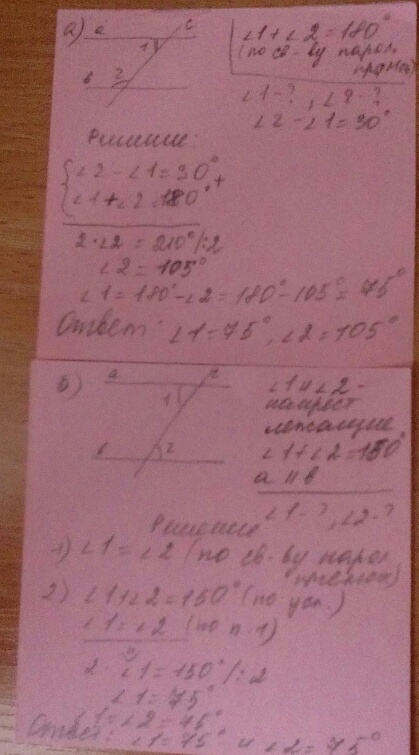 а) a c ∠1+∠2=180°
1 (по св-ву парал.
в 2 прямой)
∠1-?, ∠2-?
∠2-∠1=30°
Решение:
{∠2-∠1=30° +
∠1+∠2=180°
2·∠2=210° /:2
∠2=105°
∠1=180°-∠2=180°-105°=75°
Ответ: ∠1=75°, ∠2=105°
б) a c ∠1 и ∠2-
1 накрест
лежащие
в 2 ∠1+∠2=150°
a || в
∠1-?, ∠2-?
Решение
1) ∠1=∠2 (по св-ву парал.
прямой)
2) ∠1+∠2=150° (по усл.)
∠1=∠2 (по п.1)
2·∠1=150° /:2
∠1=75°
∠1=∠2=75°
Ответ: ∠1=75° и ∠2=75°